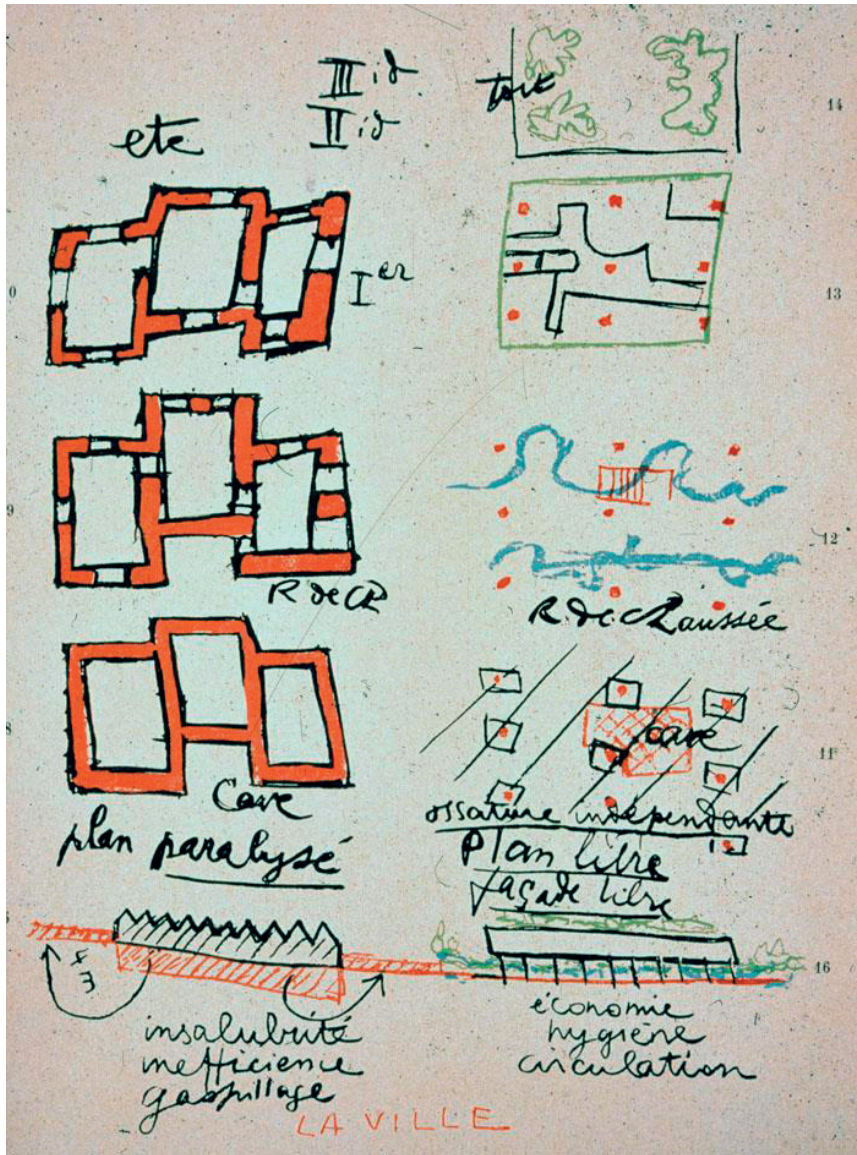 III id
II id
etc
toit
14
I er
0
13
9
12
R de Ch
R. de. chaussée
8
11
cave
Cave
ossature indépendante
plan paralysé
plan libre
façade libre
m3
16
insalubrité
inefficience
gaspillage
économie
hygiène
circulation
LA VILLE